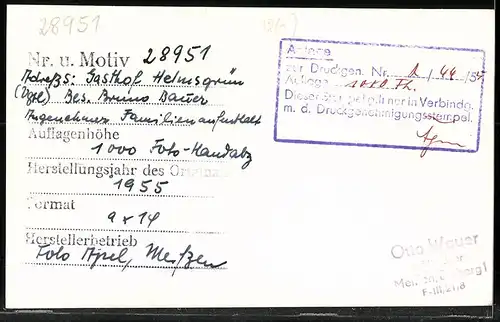 28951
Nr. u. Motiv 28951
Adreßs: Gasthof Helmsgrün
(Vgtl) Bes. Bruno Bauer
Angenehmer Familienaufenthalt
Auflagenhöhe
1000 Foto-Handabz
Herstellungsjahr des Origin
1955
Format
9x14
Herstellerbetrieb
Foto Apel,
Anlage
zur Druckgen. Nr. / 44 / 55
Auflage 1000
Dieser Stempel gilt nur in Verbindg.
m. d. Druckgenehmigungsstempel.
Otto